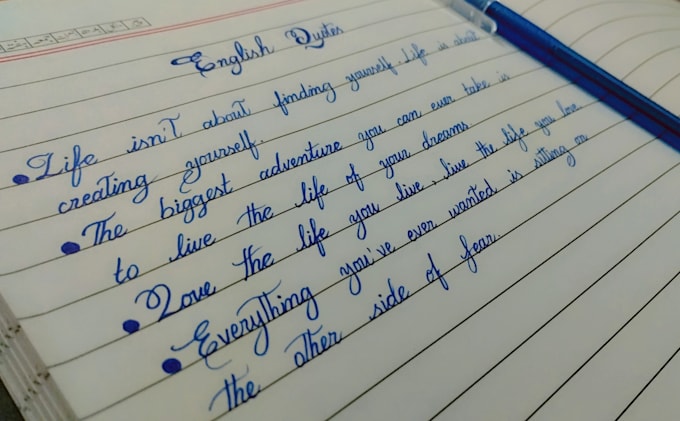 English Quotes
Life isn't about finding yourself. Life is about
creating yourself.
The biggest adventure you can ever take is
to live the life of your dreams
Love the life you live, live the life you love
Everything you've ever wanted is sitting on
the other side of fear.